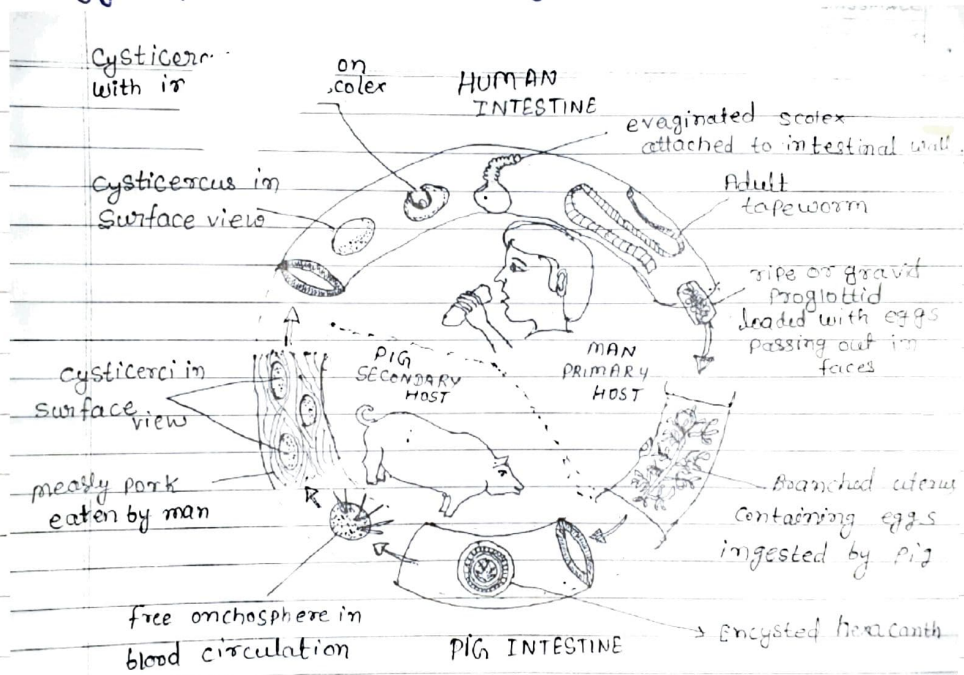 Cysticerc
with in
on
scolex
HUMAN
INTESTINE
evaginated scolex
attached to intestinal wall.
Cysticercus in
Surface view
Adult
tapeworm
ripe or gravid
Proglottid
loaded with eggs
Passing out in
faces
PIG
SECONDARY
HOST
MAN
PRIMARY
HOST
Cysticerci in
surface
view
measly pork
eaten by man
Branched uterus
Containing eggs
ingested by Pig
free onchosphere in
blood circulation
PIG INTESTINE
Encysted hexacanth